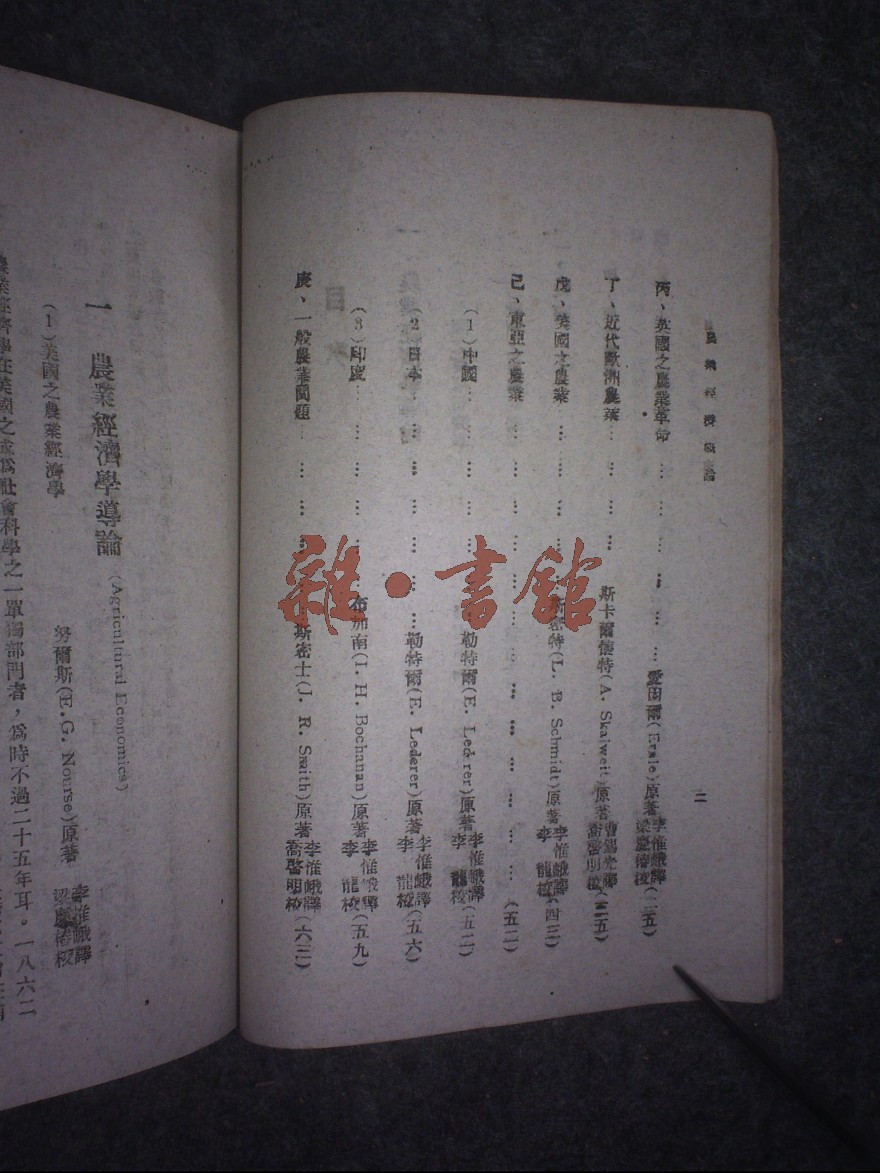 農業經濟概論
二
丙、英國之農業革命… … … … … …愛因爾(Ernle)原著李惟峨譯梁慶椿校(二五)
丁、近代歐洲農業… … … … 斯卡爾懷特(A. Skalweit)原著曹錫光譯喬啓明校(三五)
戊、美國之農業 … … … 斯密特(L. B. Schmidt)原著李惟峨譯李 龍校(四三)
己、東亞之農業 … … … … … … … … … …(五二)
(1)中國… … … … … …勒特爾(E. Lederer)原著李惟峨譯李 龍校(五二)
(2)日本… … … … … …勒特爾(E. Lederer)原著李惟峨譯李 龍校(五六)
(3)印度… … … … 布加南(I. H. Bochanan)原著李惟峨譯李 龍校(五九)
庚、一般農業問題… … … 斯密士(J. R. Smith)原著李惟峨譯喬啓明校(六三)
雜·書館
一 農業經濟學導論(Agricultural Economics)
(1)美國之農業經濟學 努爾斯(E.G. Nourse)原著李惟峨譯梁慶椿校
農業經濟學在美國之成爲社會科學之一單獨部門者，爲時不過二十五年耳。一八六二